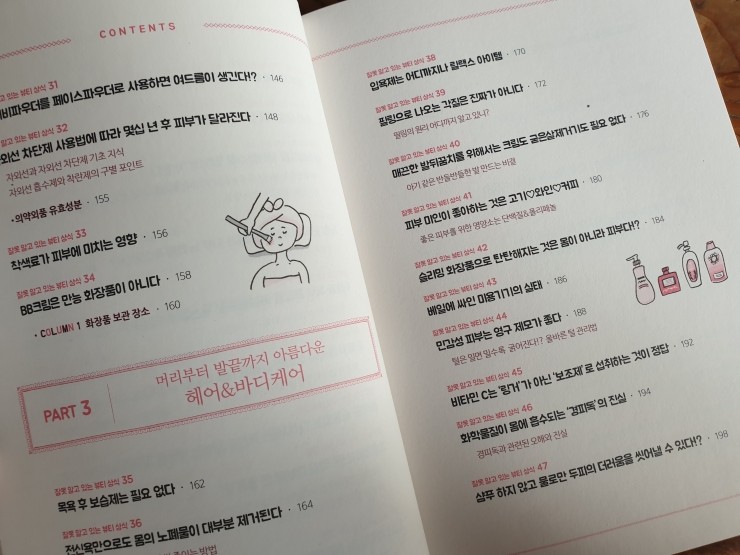 CONTENTS
알고 있는 뷰티 상식 31
비파우더를 페이스파우더로 사용하면 여드름이 생긴다!? · 146
알고 있는 뷰티 상식 32
외선 차단제 사용법에 따라 몇십 년 후 피부가 달라진다 · 148
자외선과 자외선 차단제 기초 지식
자외선 흡수제와 착란제의 구별 포인트
• 의약외품 유효성분 · 155
잘못 알고 있는 뷰티 상식 33
착색료가 피부에 미치는 영향 · 156
잘못 알고 있는 뷰티 상식 34
BB크림은 만능 화장품이 아니다 · 158
• COLUMN 1 화장품 보관 장소 · 160
PART 3
머리부터 발끝까지 아름다운
헤어&바디케어
잘못 알고 있는 뷰티 상식 35
목욕 후 보습제는 필요 없다 · 162
잘못 알고 있는 뷰티 상식 36
전신욕만으로도 몸의 노폐물이 대부분 제거된다 · 164
방법
잘못 알고 있는 뷰티 상식 38
입욕제는 어디까지나 릴랙스 아이템 · 170
잘못 알고 있는 뷰티 상식 39
필링으로 나오는 각질은 진짜가 아니다 · 172
필링의 원리 어디까지 알고 있니?
잘못 알고 있는 뷰티 상식 40
매끈한 발뒤꿈치를 위해서는 크림도 굳은살제거기도 필요 없다 · 176
아기 같은 반들반들한 발 만드는 비결
잘못 알고 있는 뷰티 상식 41
피부 미인이 좋아하는 것은 고기♡와인♡커피 · 180
좋은 피부를 위한 영양소는 단백질&폴리페놀
잘못 알고 있는 뷰티 상식 42
슬리밍 화장품으로 탄탄해지는 것은 몸이 아니라 피부다!? · 184
잘못 알고 있는 뷰티 상식 43
베일에 싸인 미용기기의 실태 · 186
잘못 알고 있는 뷰티 상식 44
민감성 피부는 영구 제모가 좋다 · 188
털은 밀면 밀수록 굵어진다!? 올바른 털 관리법
잘못 알고 있는 뷰티 상식 45
비타민 C는 '링거'가 아닌 '보조제'로 섭취하는 것이 정답 · 192
잘못 알고 있는 뷰티 상식 46
화학물질이 몸에 흡수되는 '경피독'의 진실 · 194
경피독과 관련된 오해와 진실
잘못 알고 있는 뷰티 상식 47
샴푸 하지 않고 물로만 두피의 더러움을 씻어낼 수 있다!? · 198